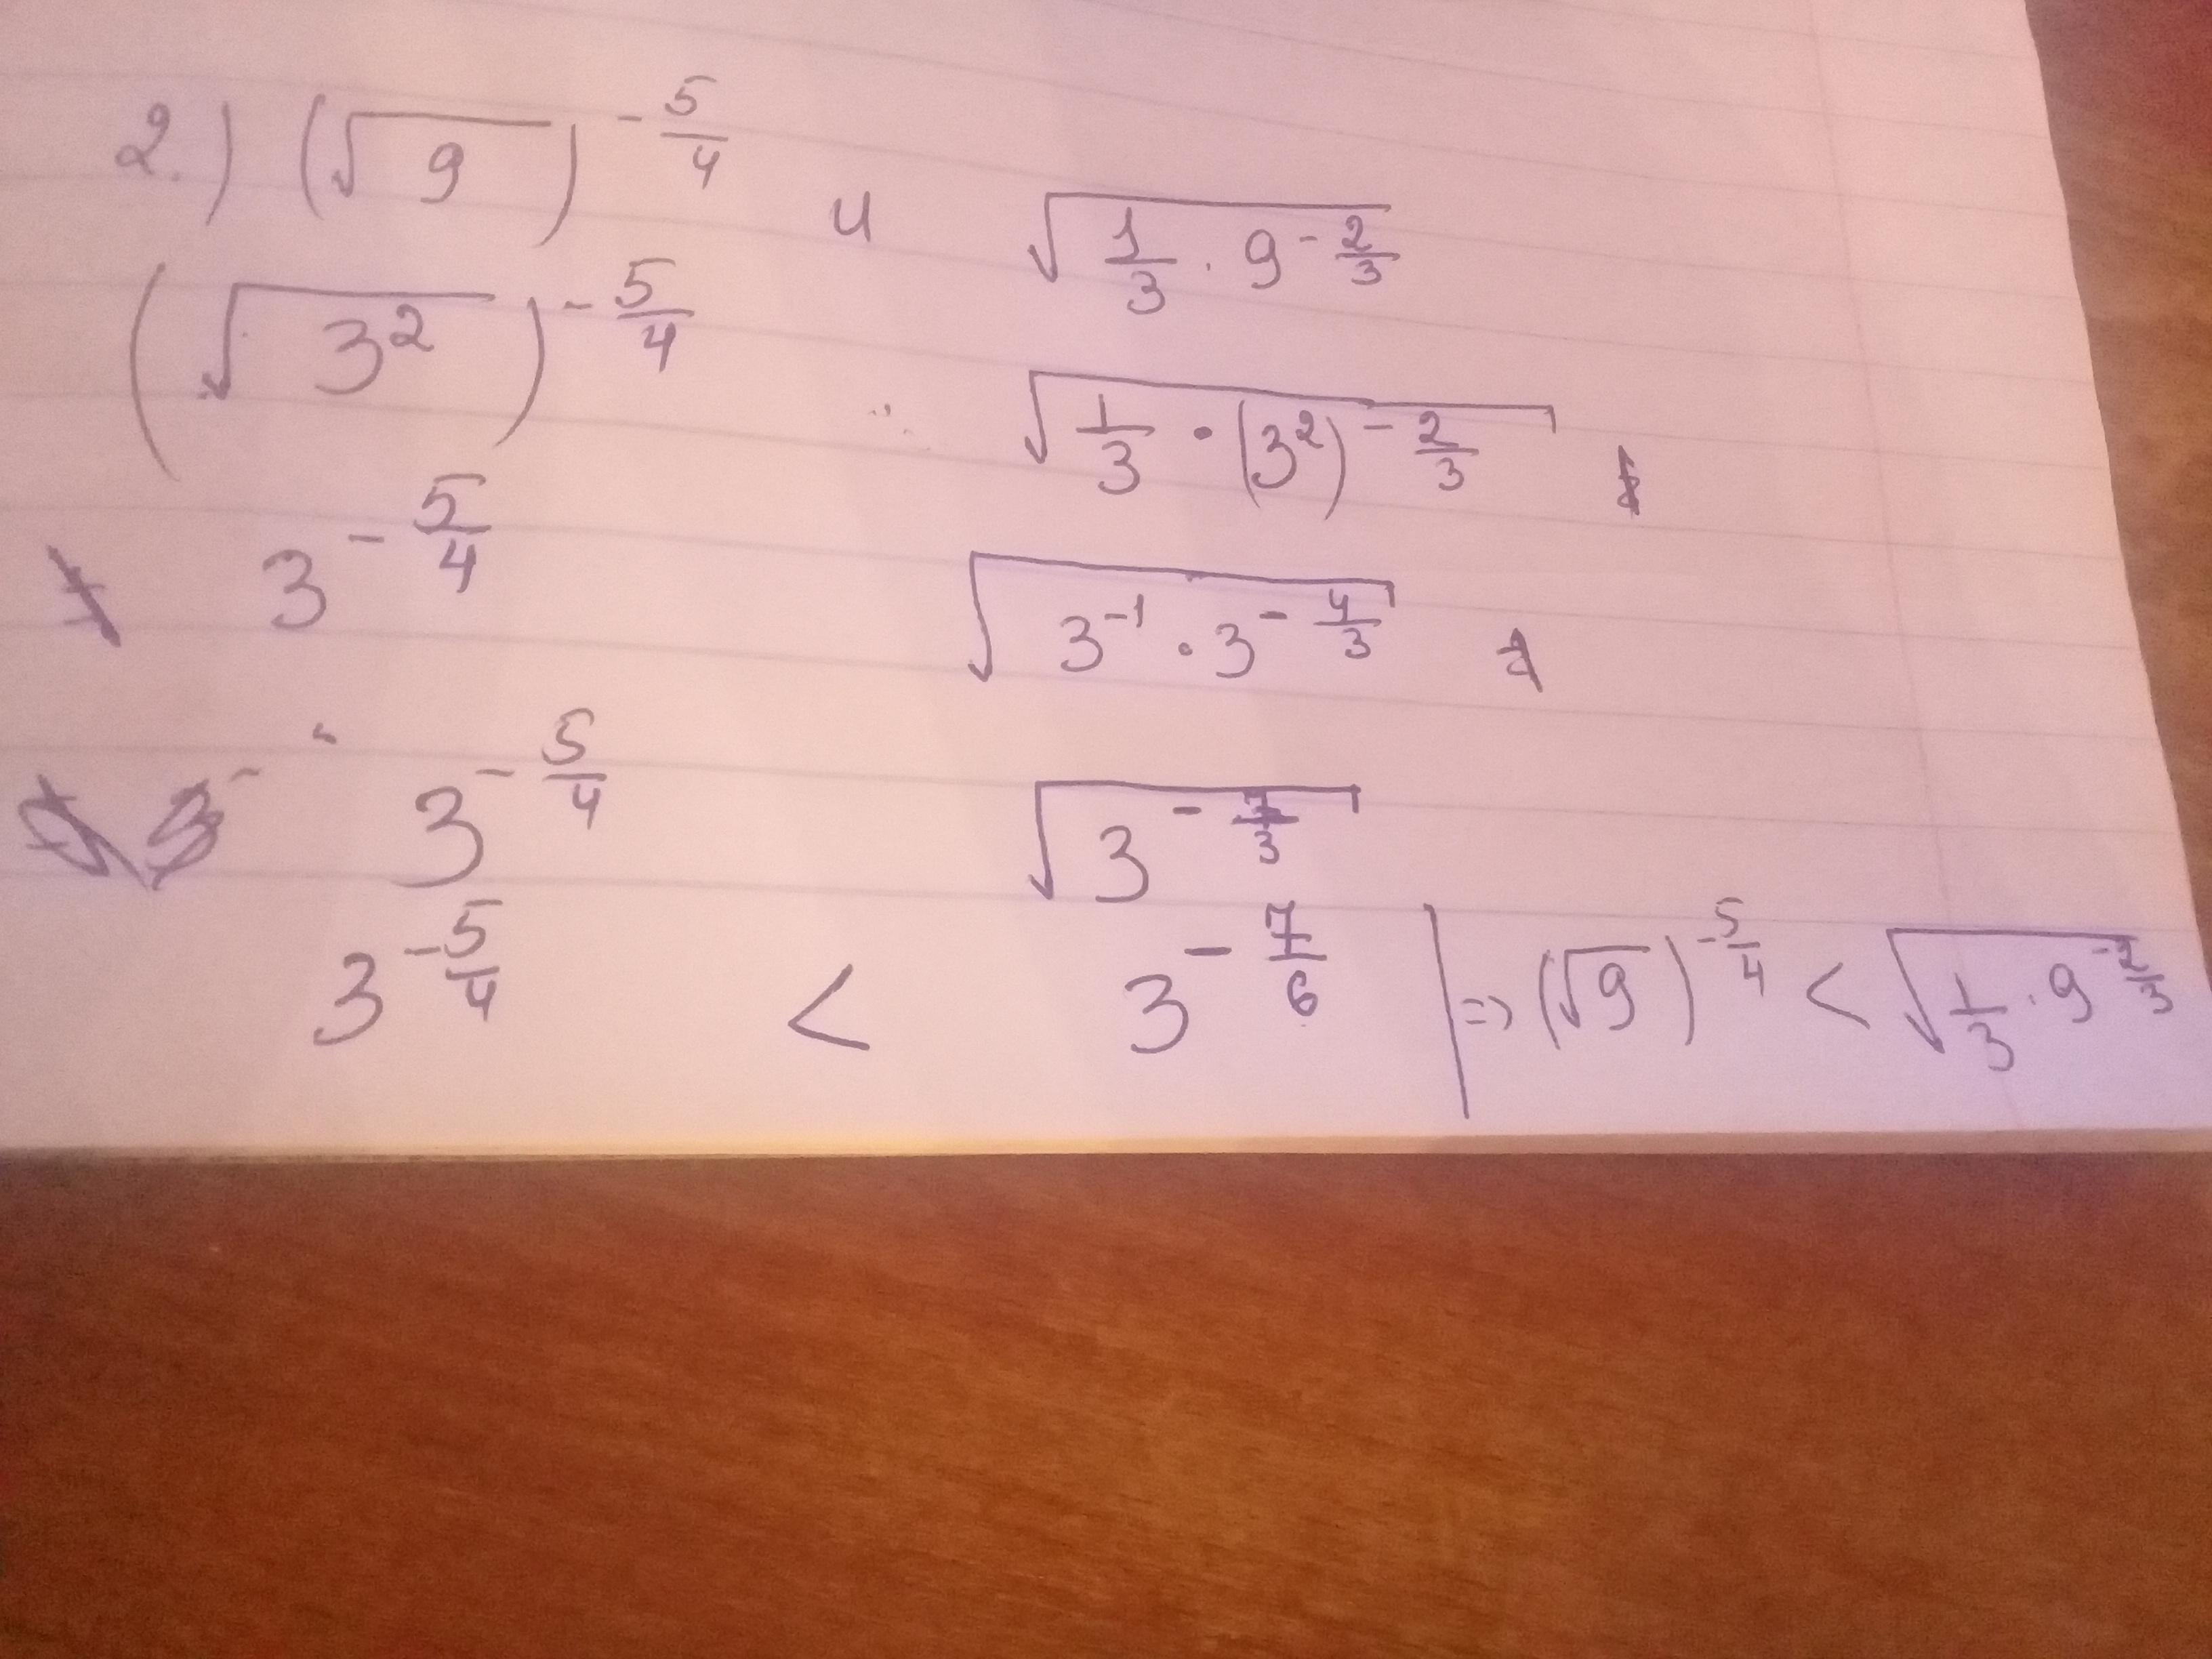 2.) (√9)^(-5/4) и √(1/3 · 9^(-2/3))
(√3²)^(-5/4) √(1/3 · (3²)^(-2/3))
3^(-5/4) √(3^(-1) · 3^(-4/3))
3^(-5/4) √(3^(-7/3))
3^(-5/4) < 3^(-7/6) | => (√9)^(-5/4) < √(1/3 · 9^(-2/3))